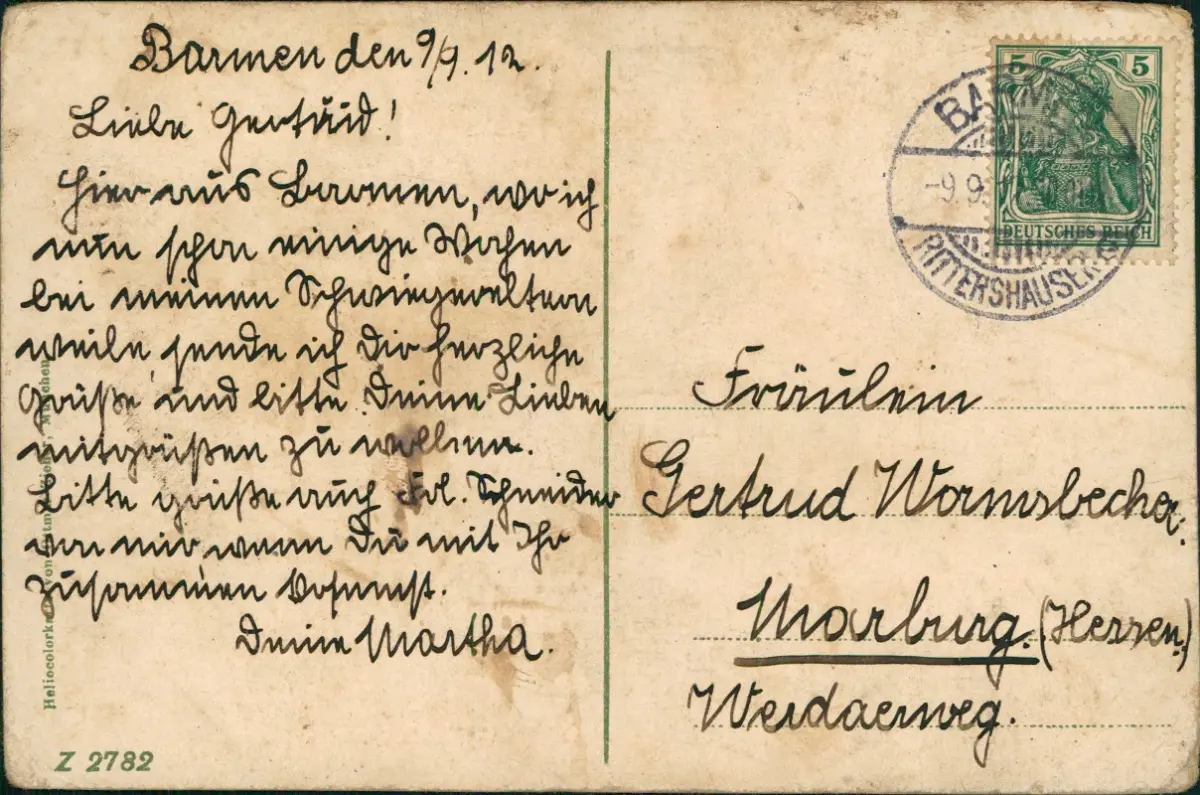 Barmen den 9/9. 12.
Liebe Gertrud!
Hier aus Barmen, wo ich
nun schon einige Wochen
bei meinen Schwiegereltern
weile, sende ich Dir herzliche
Grüße und bitte Deine Lieben
mitgrüßen zu wollen.
Bitte grüße auch Frl. Schneider
von mir, wenn Du mit Ihr
zusammen kommst.
Deine Martha.
Heliocolorkarte von Ottmar Zieher, München
Z 2782
5 5
DEUTSCHES REICH
BARMEN
-9.9.
RITTERSHAUSEN
Fräulein
Gertrud Wormsbecher.
Marburg. (Hessen)
Werdaerweg.